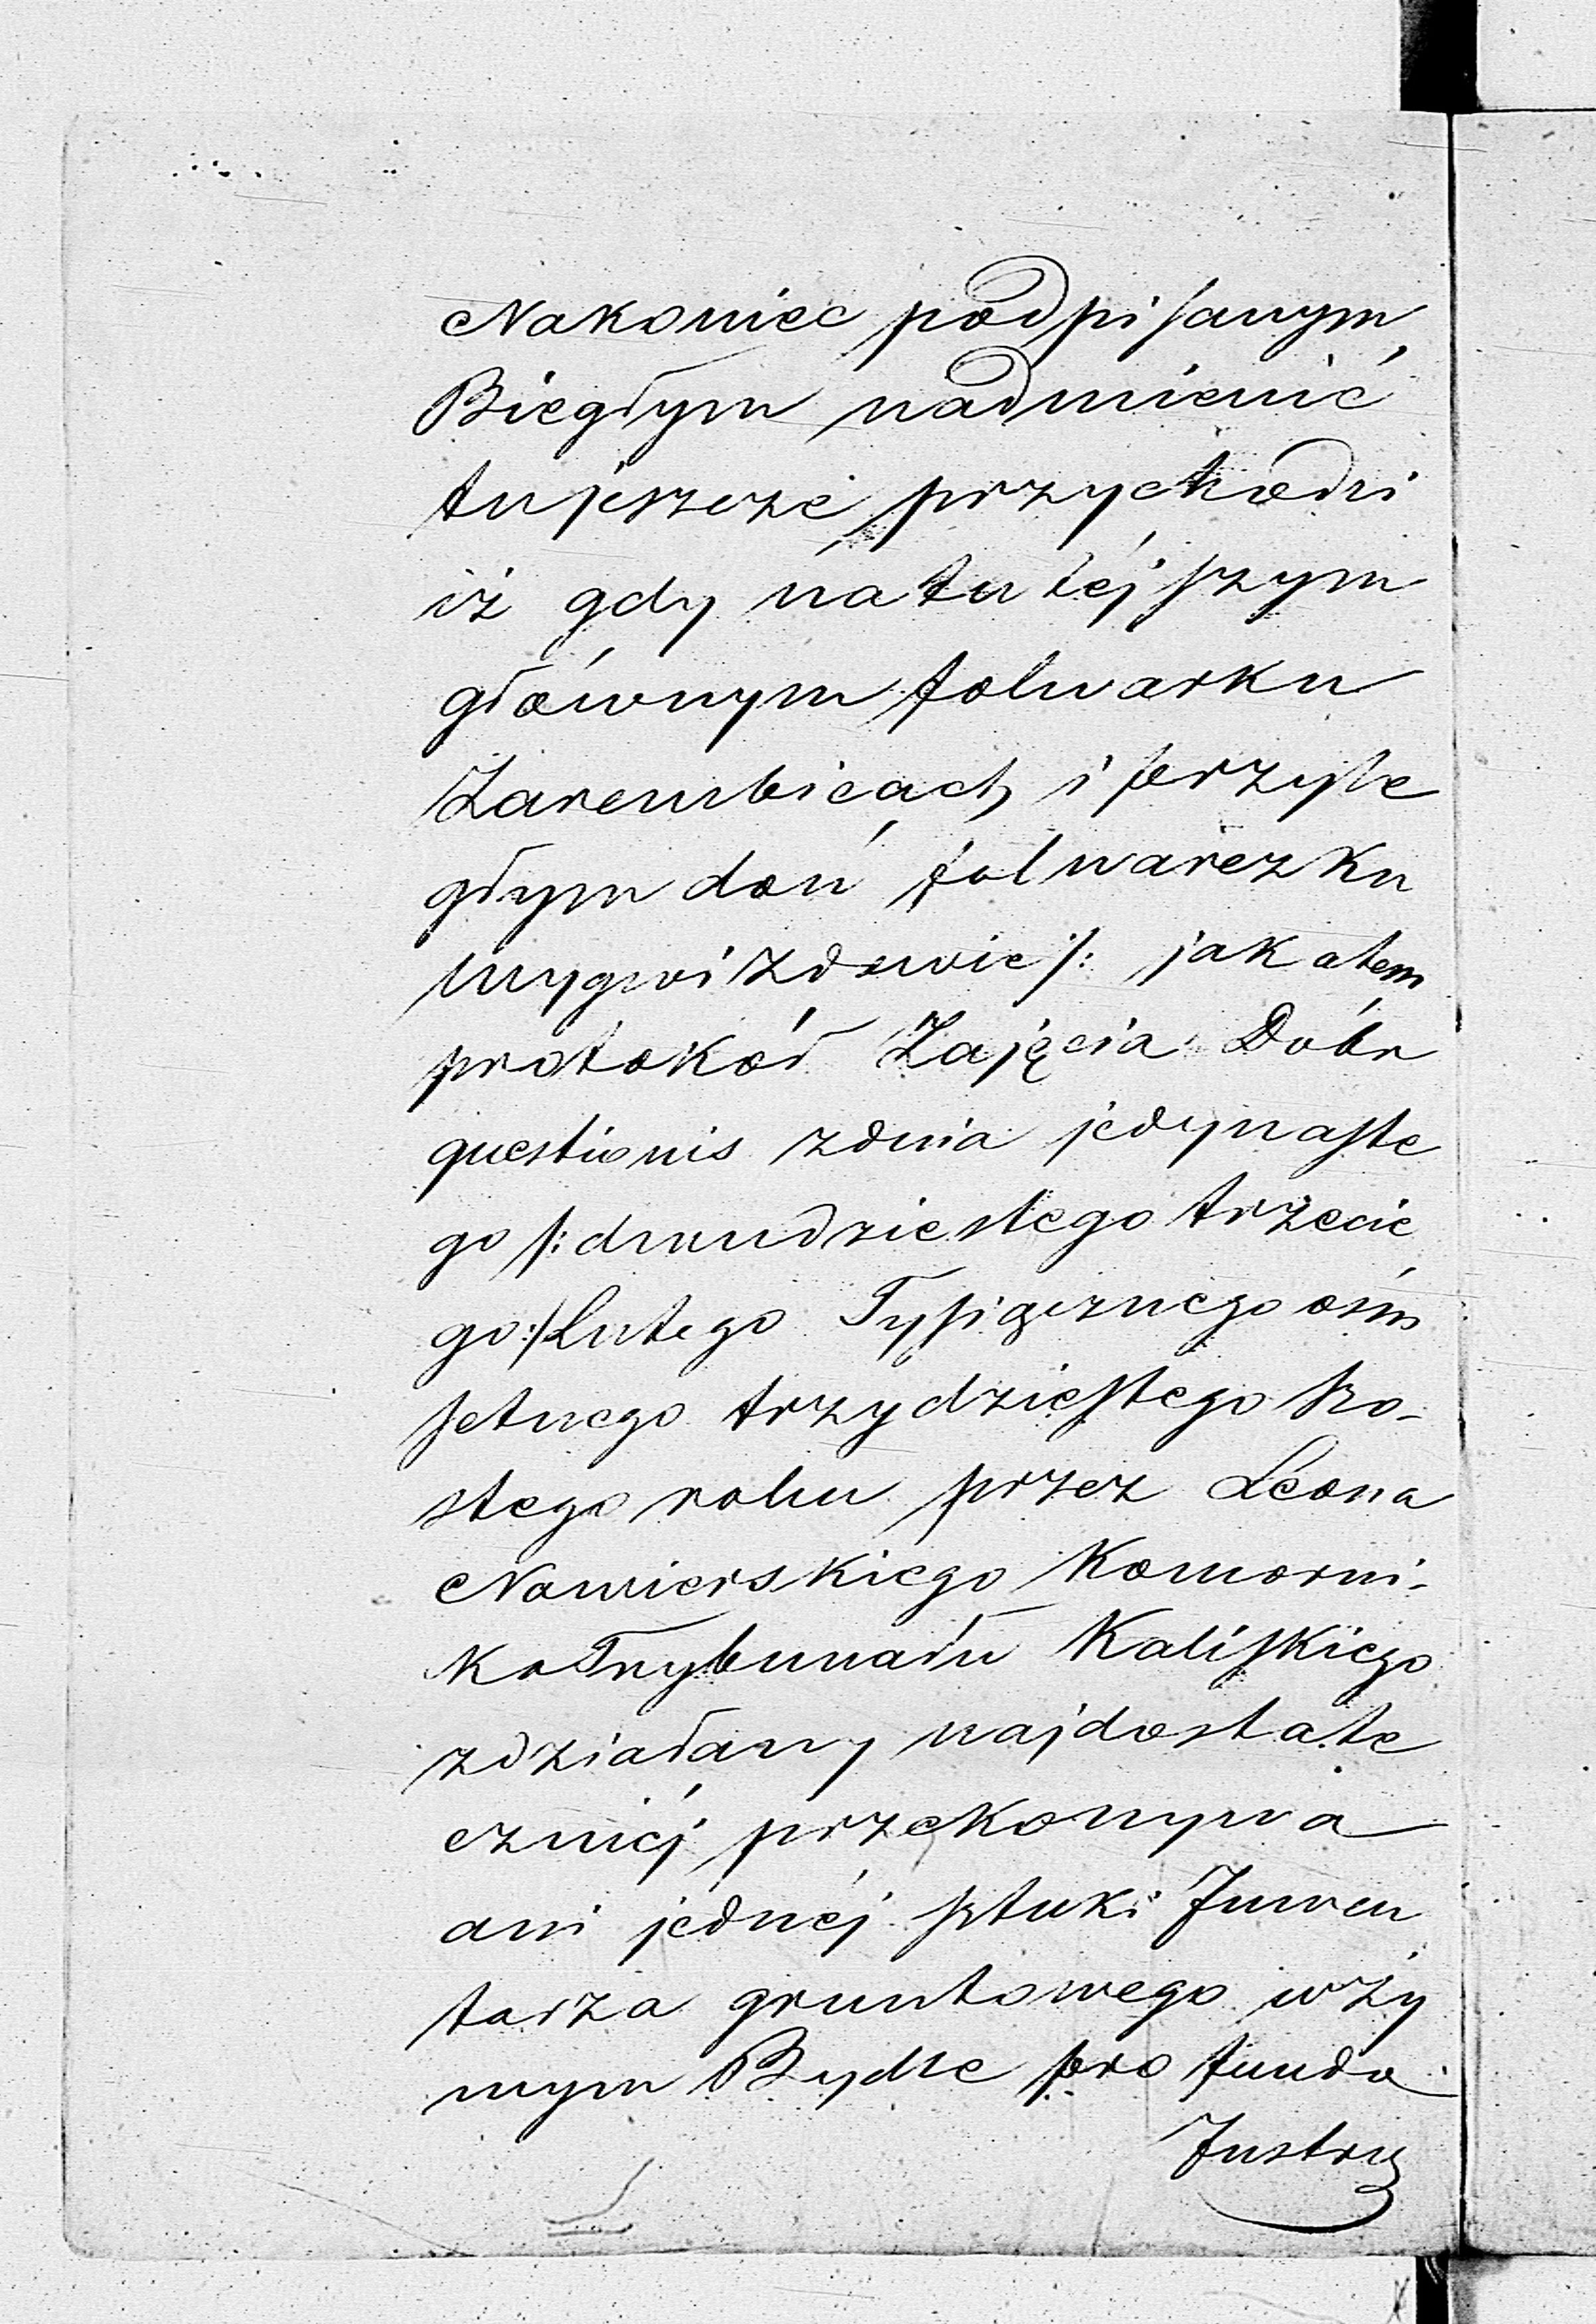 Nakoniec podpisanym
Biegłym nadmienić
tu jeszcze przychodzi
iż gdy na tutéjszym
głównym folwarku
Zarembicach i przyle
głym doń folwarczku
Wygwizdowie /: jak o tem
protokół Zajęcia Dóbr
questionis z dnia jedynaste
go /: dwudziestego trzecie
go :/ Lutego Tysiącznego ośm
setnego trzydziestego szo-
stego roku przez Léona
Nawierskiego Komorni-
ka Trybunału Kaliskiego
zdziałany najdostate
czniéj przekonywa
ani jednéj sztuki Inwen
tarza gruntowego w ży
wym Bydle pro fundo
Instru